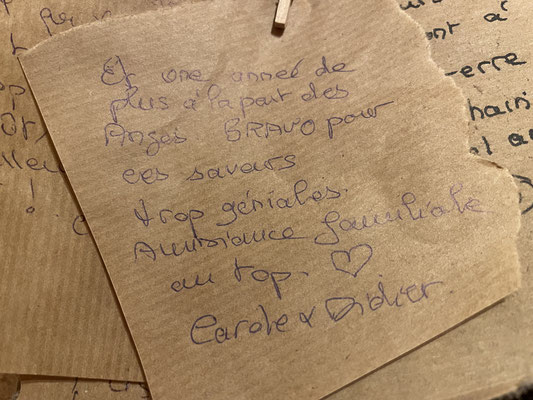 Et une année de
plus à la part des
Anges BRAVO pour
ces saveurs
trop géniales.
Ambiance familiale
au top. ♡
Carole & Didier.
ont à
terre
!